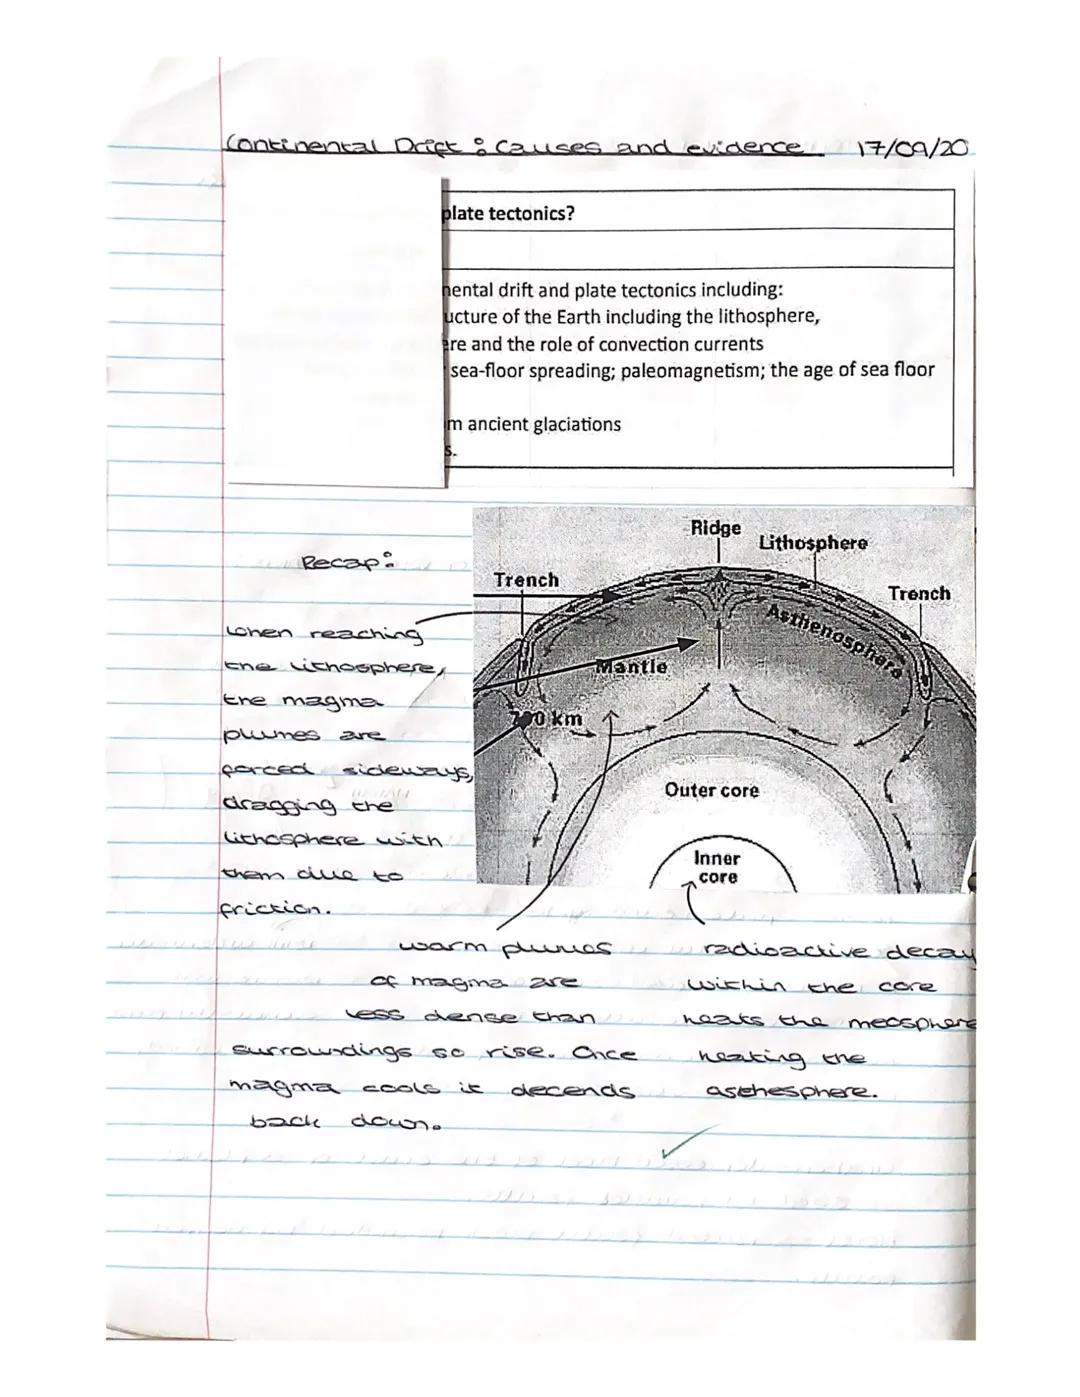 Continental Drift : Causes and evidence 17/09/20
plate tectonics?
nental drift and plate tectonics including:
ucture of the Earth including the lithosphere,
ere and the role of convection currents
sea-floor spreading; paleomagnetism; the age of sea floor
m ancient glaciations
s.
Recap:
When reaching
the lithosphere,
the magma
plumes are
forced sideways,
dragging the
lithosphere with
them due to
friction.
Ridge
Lithosphere
Trench
Trench
Asthenosphere
Mantle
700 km
Outer core
Inner
core
warm plumes
of magma are
less dense than
surrowdings so rise. Once
magma cools it decends
back down.
radioactive decay
within the core
heats the meosphere
heating the
asthesphere.